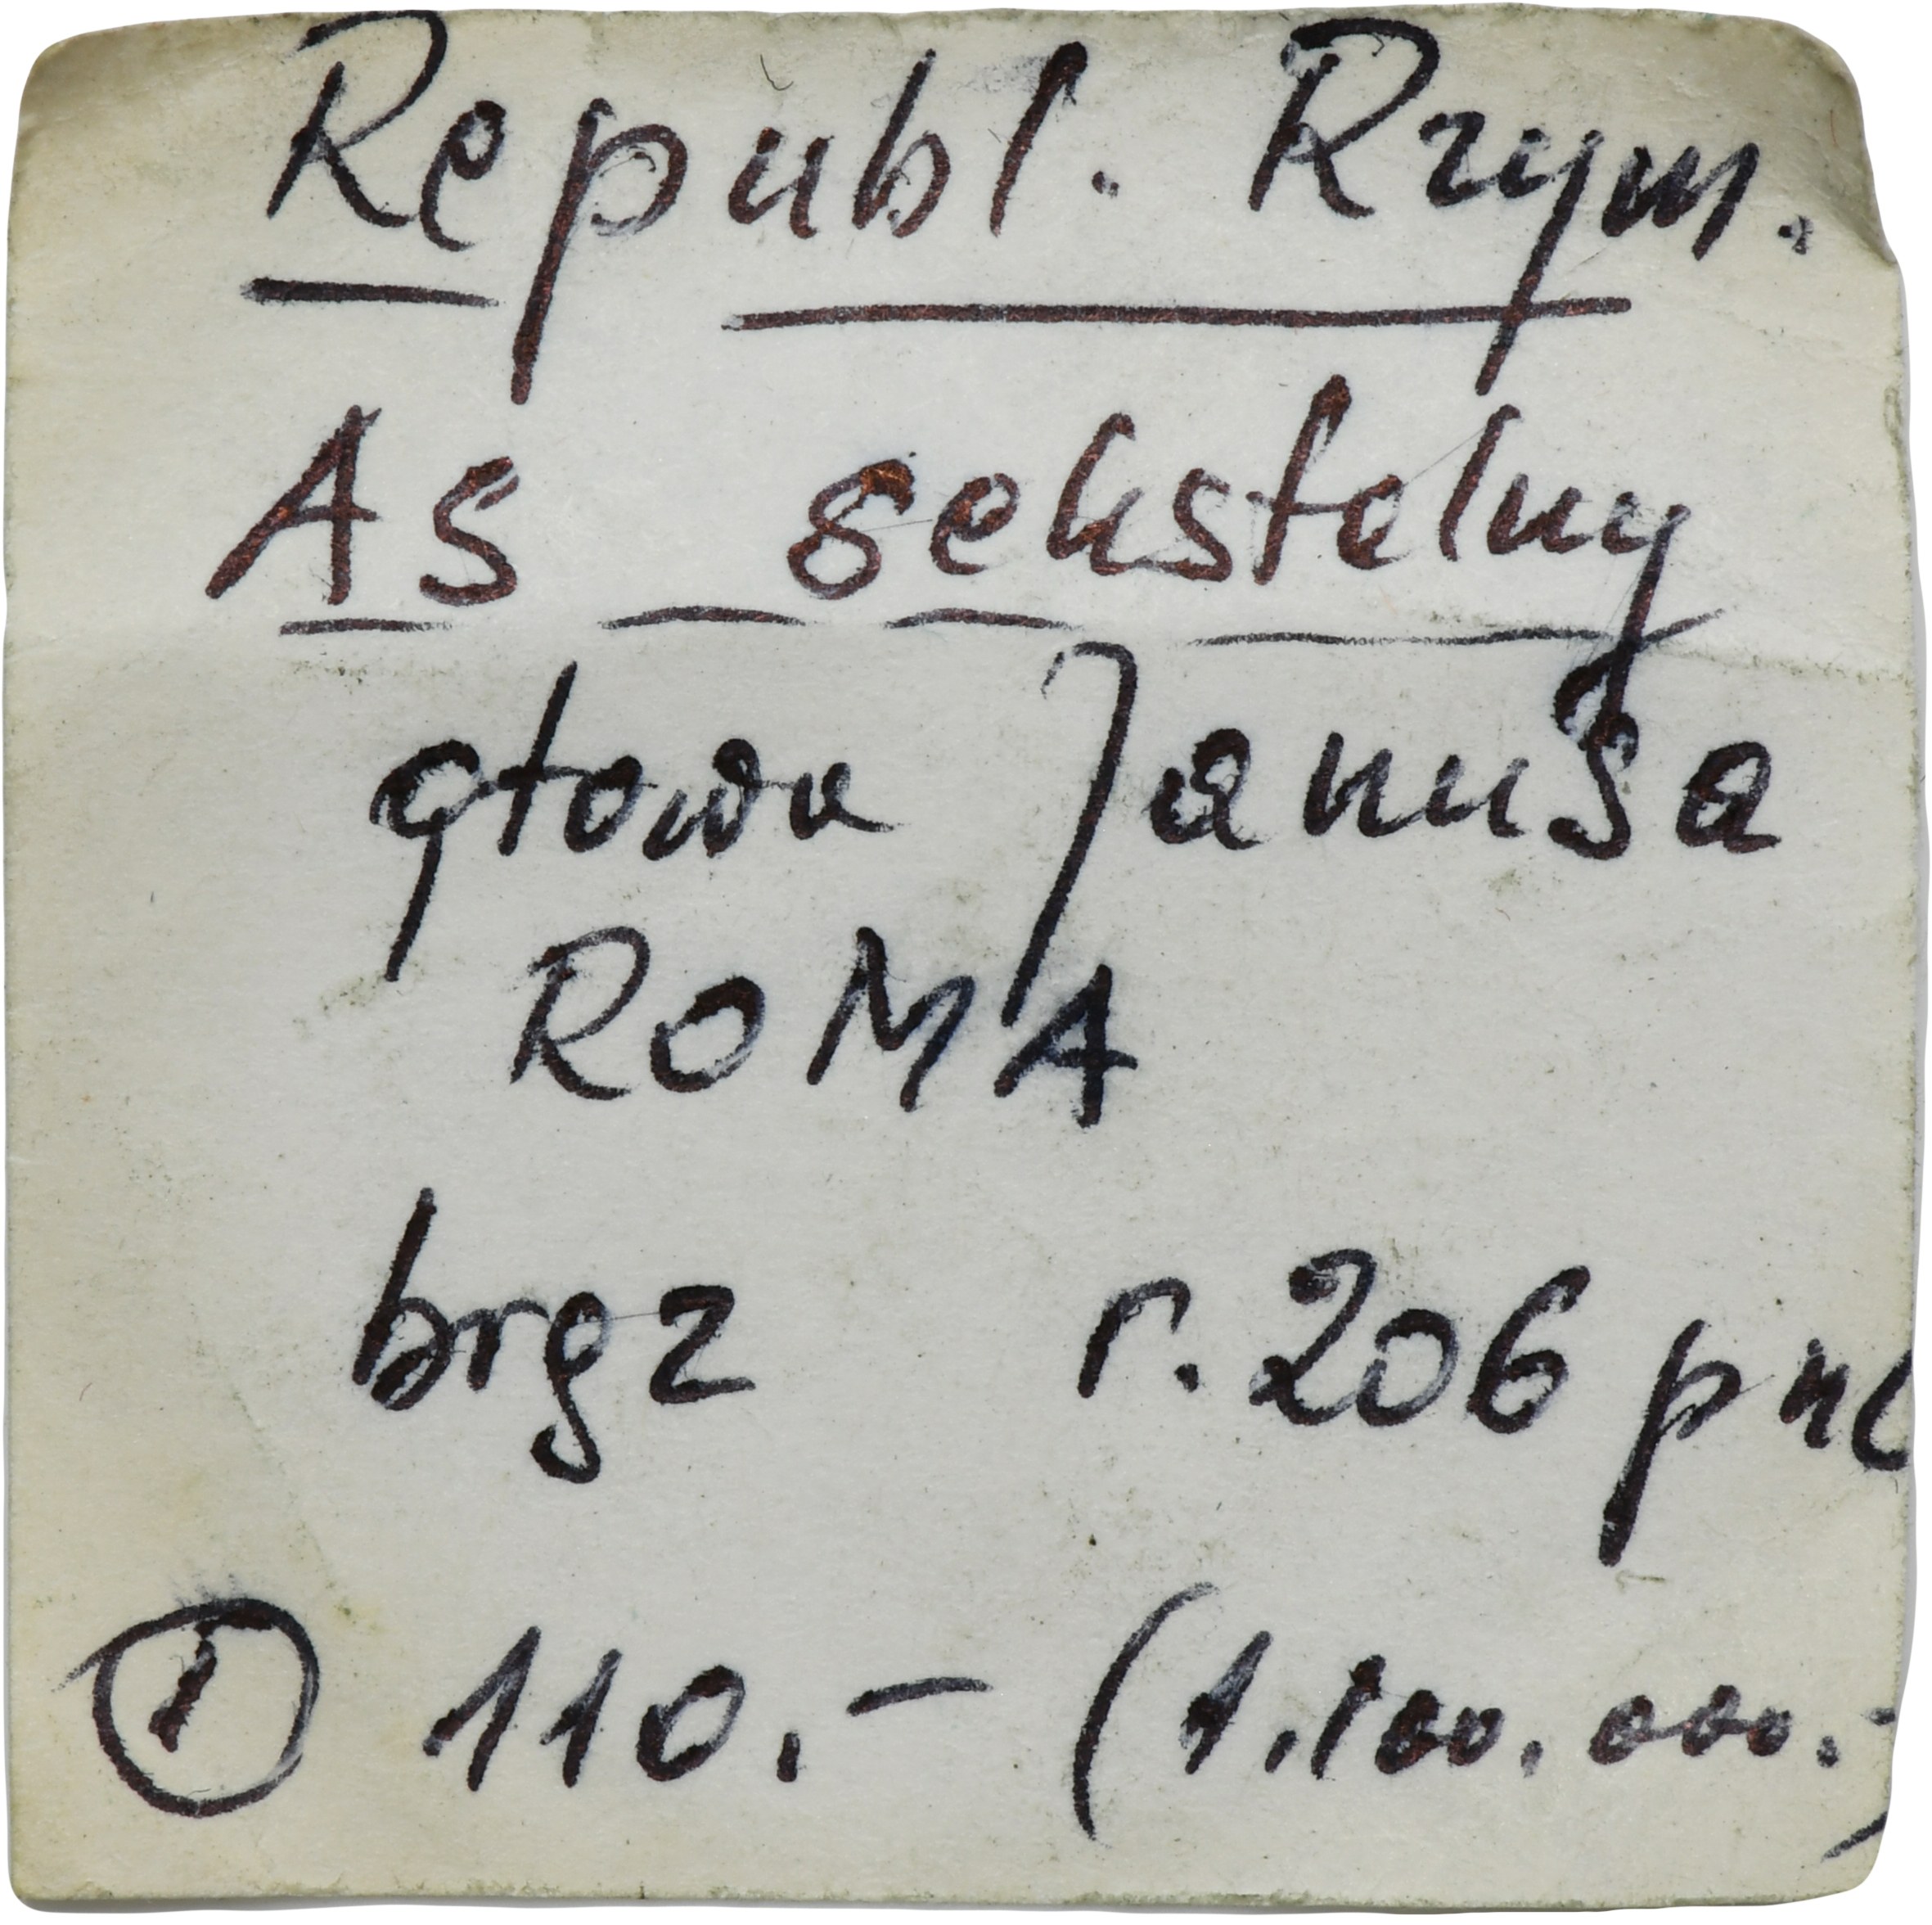 Republ. Rzym.
As sekstalny
głowa Janusa
ROMA
brąz r. 206 pne
① 110.- (1.100.000.-)